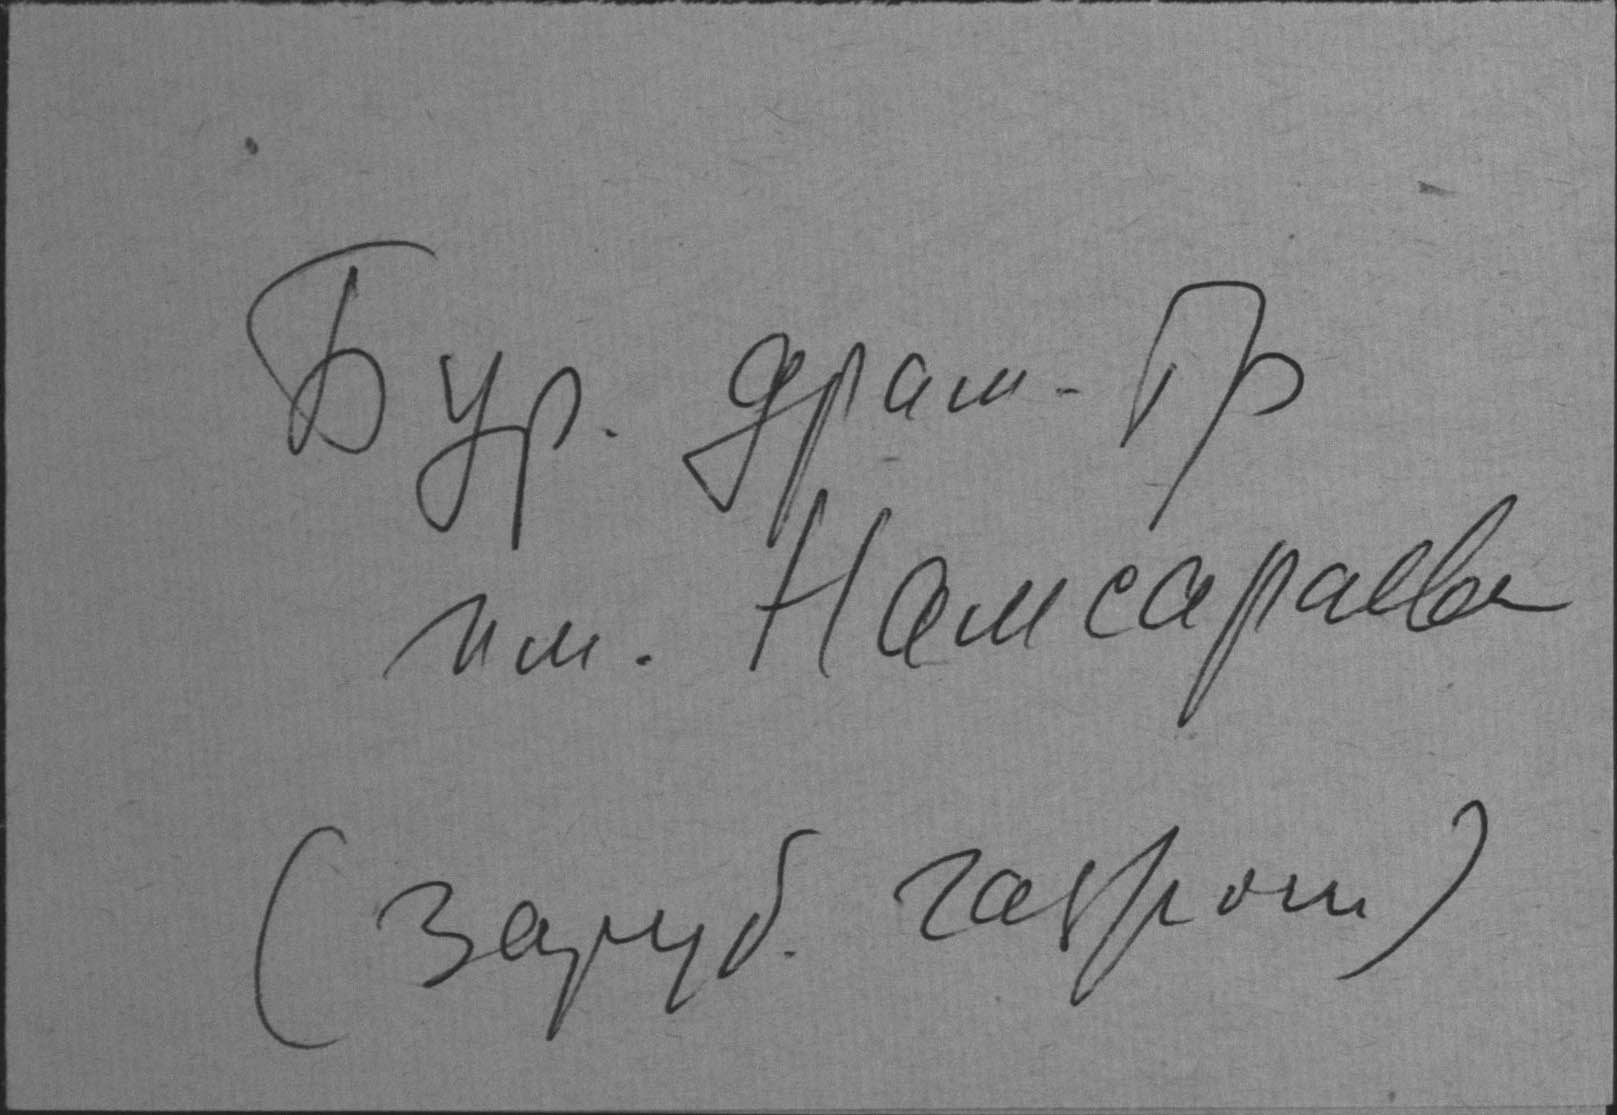 Бур. драм. Тр
им. Намсараева
(заруб. гастроли)